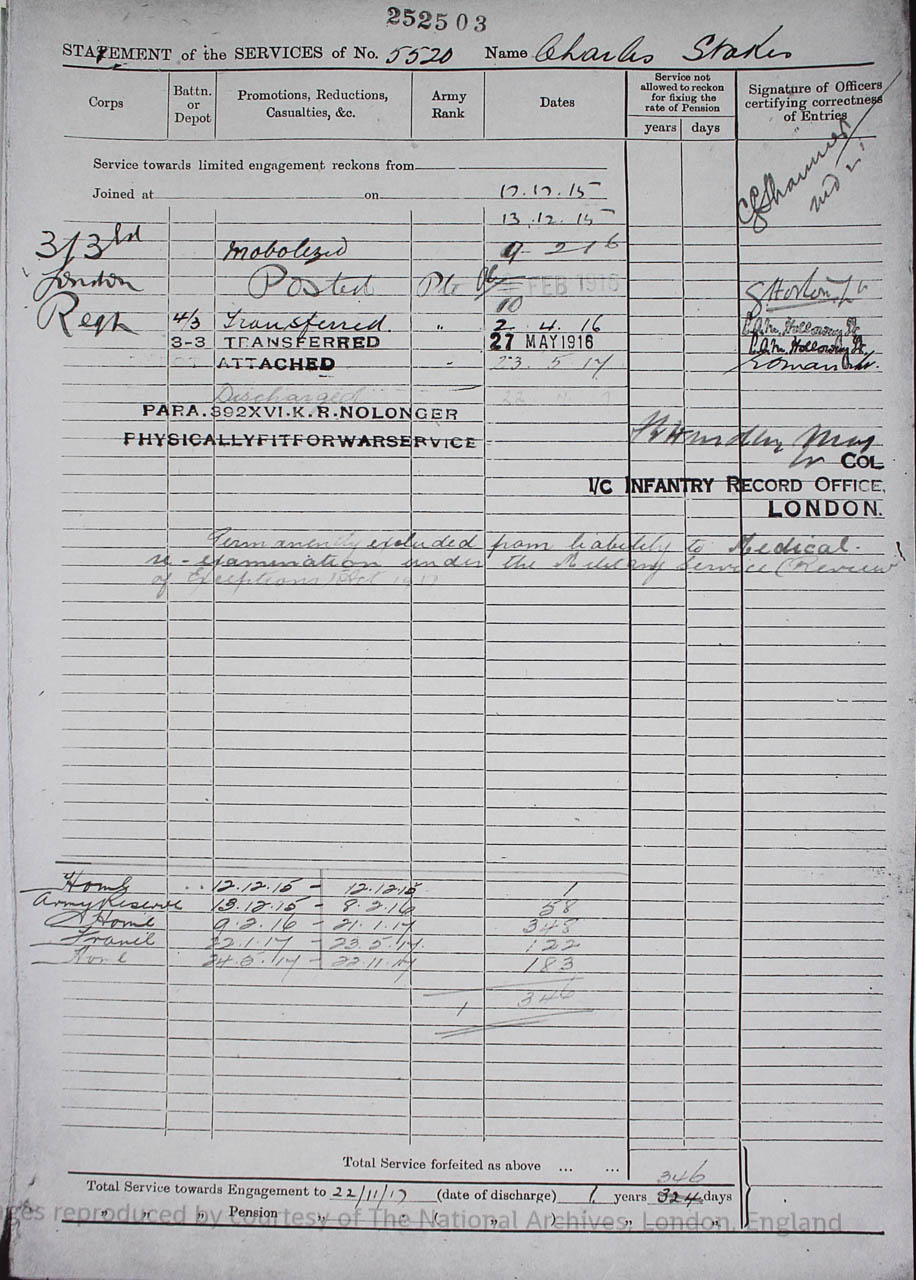 252503
STATEMENT of the SERVICES of No. 5520 Name Charles Stokes
Corps
Battn. or Depot
Promotions, Reductions, Casualties, &c.
Army Rank
Dates
Service not allowed to reckon for fixing the rate of Pension
years days
Signature of Officers certifying correctness of Entries
Service towards limited engagement reckons from
Joined at on 12.12.15
13.12.15
3/3rd Mobolized 9 2 16
London Posted Pte FEB 1916
10
Regt 4/3 Transferred. " 2 4. 16 Holloway
3-3 TRANSFERRED 27 MAY 1916 Holloway
ATTACHED 23. 5 17
Discharged
PARA.392XVI.K.R.NOLONGER
PHYSICALLYFITFORWARSERVICE
COL
I/C INFANTRY RECORD OFFICE,
LONDON.
Permanently excluded from liability to Medical.
re-examination under the Military Service (Review
of Exceptions) Act 1917
Home 12.12.15 - 12.12.15 1
Army Reserve 13.12.15 - 8.2.16 58
Home 9.2.16 - 21.1.17 348
France 22.1.17 - 23.5.17. 122
Home 24.5.17 - 22.11.17 183
1 346
Total Service forfeited as above ... ...
346
Total Service towards Engagement to 22/11/17 (date of discharge) 1 years 324 days
" " " Pension " ( " ) " "
ges reproduced by courtesy of The National Archives, London, England